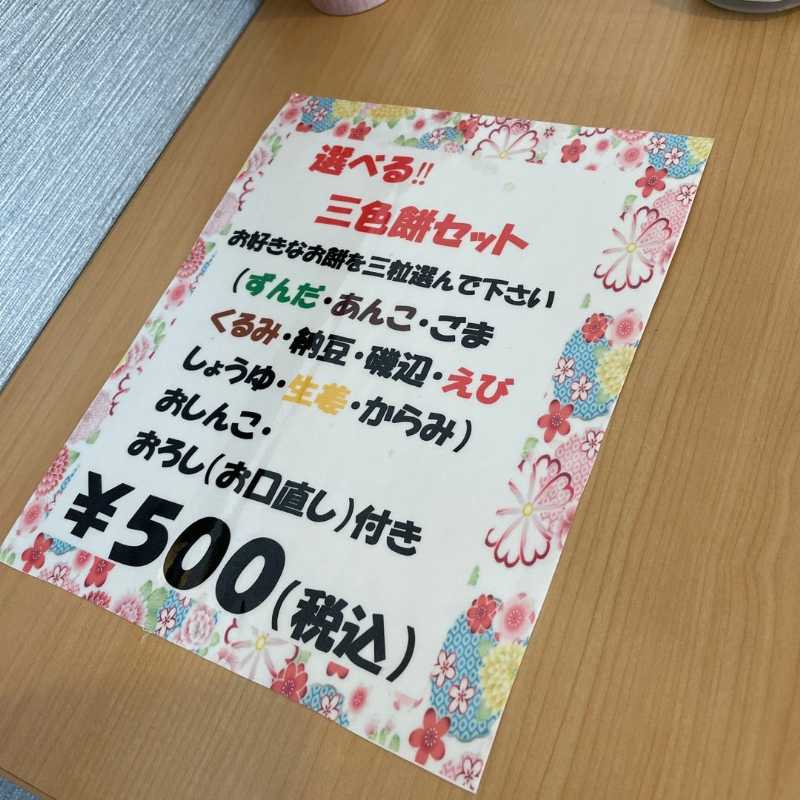 選べる!!
三色餅セット
お好きなお餅を三粒選んで下さい
(ずんだ・あんこ・ごま
くるみ・納豆・磯辺・えび
しょうゆ・生姜・からみ)
おしんこ・
おろし(お口直し)付き
¥500(税込)